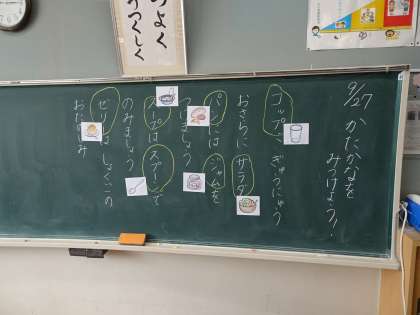 9/27 かたかなを
みつけよう!!
コップに ぎゅうにゅう
おさらに サラダ
パンには ジャムを
つけましょう
スープは スプーンで
のみましょう
ゼリーは しょくごの
おたのしみ
つよく
うつくしく